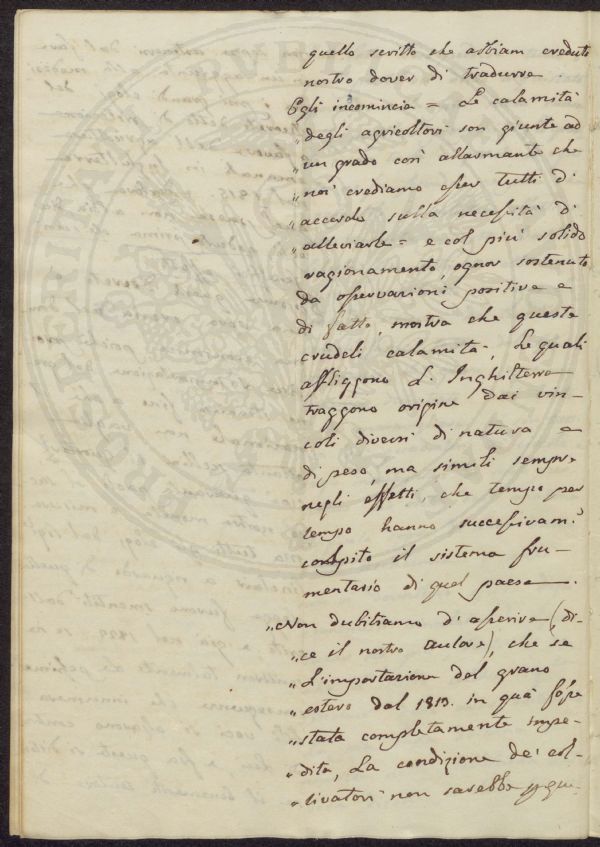 quello scritto che abbiam creduto
nostro dover di tradurre
Egli incomincia = Le calamità
„ degli agricoltori son giunte ad
„ un grado così allarmante che
„ noi crediamo esser tutti di
„ accordo sulla necessità di
„ alleviarle = e col più solido
ragionamento, ognor sostenuto
da osservazioni positive e
di fatto, mostra che queste
crudeli calamità, le quali
affliggono L'Inghilterra
traggono origine dai vin-
coli diversi di natura e
di peso, ma simili sempre
negli effetti, che tempo per
tempo hanno successivam.e
colpito il sistema fru-
mentario di quel paese.
„ Non dubitiamo d'asserire (di-
„ ce il nostro autore), che se
„ L'importazione del grano
„ estero dal 1813. in quà fosse
„ stata completamente impe-
„ dita, La condizione de' col-
„ tivatori non sarebbe